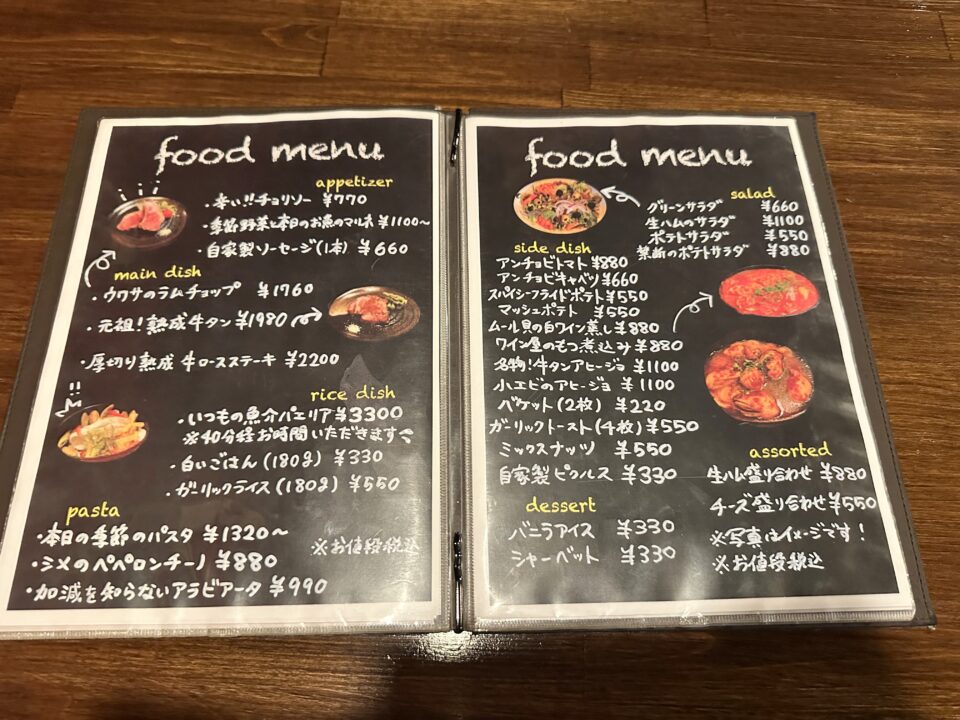 food menu
appetizer
・辛い!!チョリソー ¥770
・季節野菜と本日のお魚のマルネ ¥1100~
・自家製ソーセージ(1本) ¥660
main dish
・ウワサのラムチョップ ¥1760
・元祖!熟成牛タン ¥1980
・厚切り熟成 牛ロースステーキ ¥2200
rice dish
・いつもの魚介パエリア ¥3300
※40分程お時間いただきます
・白いごはん(180g) ¥330
・ガーリックライス(180g) ¥550
pasta
・本日の季節のパスタ ¥1320~
・シメのペペロンチーノ ¥880
・加減を知らないアラビアータ ¥990
※お値段税込
food menu
salad
グリーンサラダ ¥660
生ハムのサラダ ¥1100
ポテトサラダ ¥550
禁断のポテトサラダ ¥880
side dish
アンチョビトマト ¥880
アンチョビキャベツ ¥660
スパイシーフライドポテト ¥550
マッシュポテト ¥550
ムール貝の白ワイン蒸し ¥880
ワイン屋のもつ煮込み ¥880
名物!牛タンアヒージョ ¥1100
小エビのアヒージョ ¥1100
バケット(2枚) ¥220
ガーリックトースト(4枚) ¥550
ミックスナッツ ¥550
自家製ピクルス ¥330
dessert
バニラアイス ¥330
シャーベット ¥330
assorted
生ハム盛り合わせ ¥880
チーズ盛り合わせ ¥550
※写真はイメージです!
※お値段税込